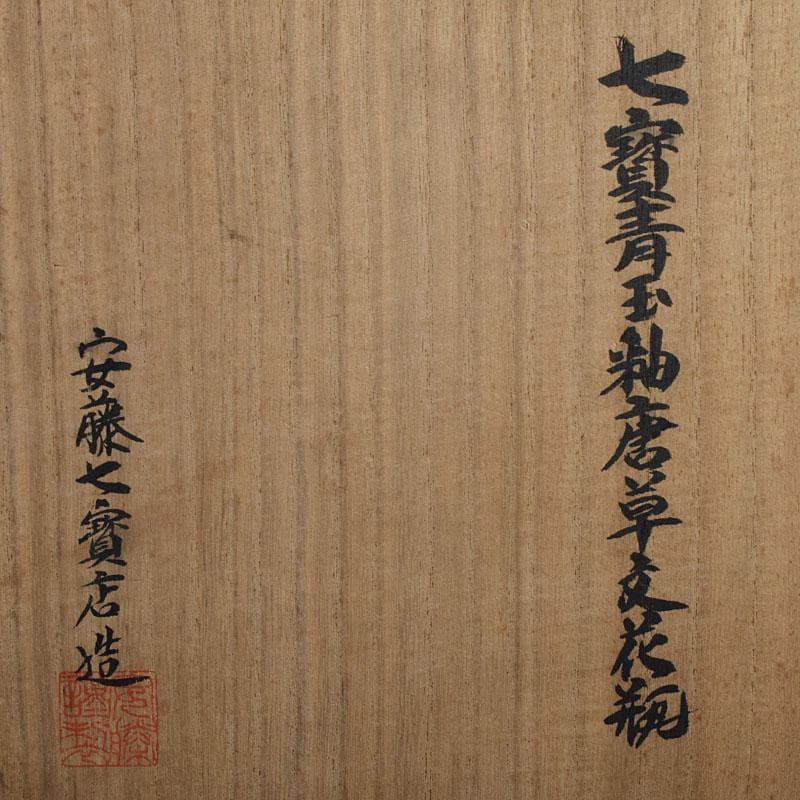 七寳青玉釉唐草文花瓶
安藤七寳店造